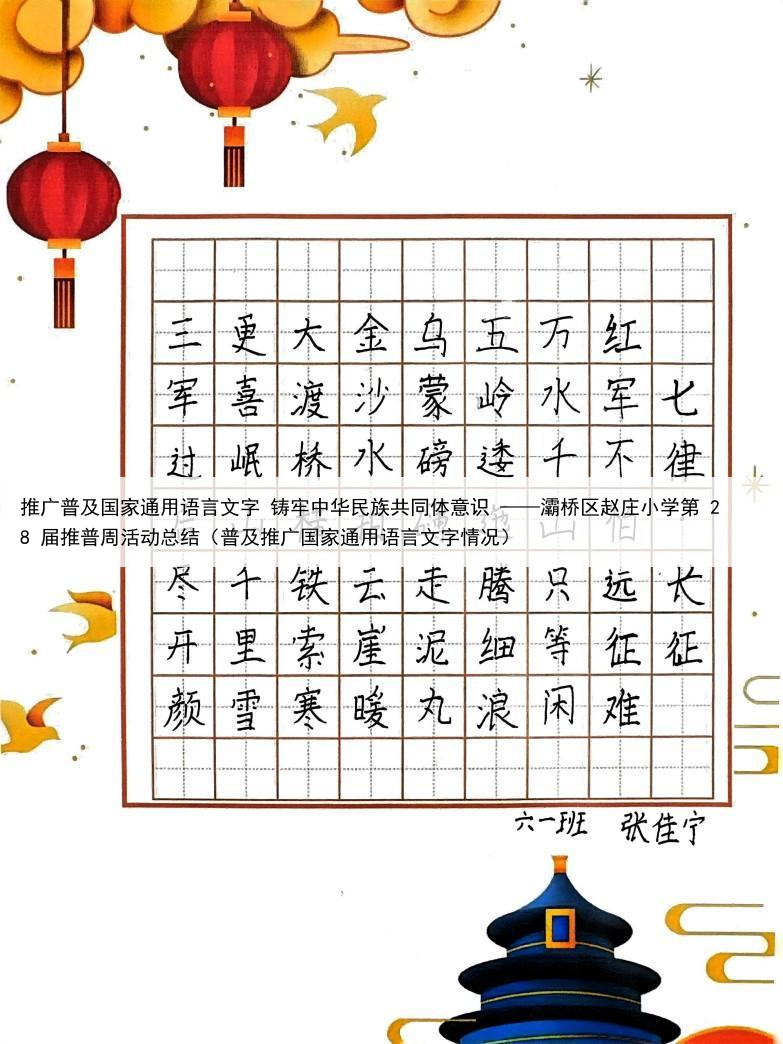 七律长征
红军不怕远征难
万水千山只等闲
五岭逶迤腾细浪
乌蒙磅礴走泥丸
金沙水拍云崖暖
大渡桥横铁索寒
更喜岷山千里雪
三军过后尽开颜
推广普及国家通用语言文字 铸牢中华民族共同体意识 ——灞桥区赵庄小学第 2
8 届推普周活动总结（普及推广国家通用语言文字情况）
六一班 张佳宁